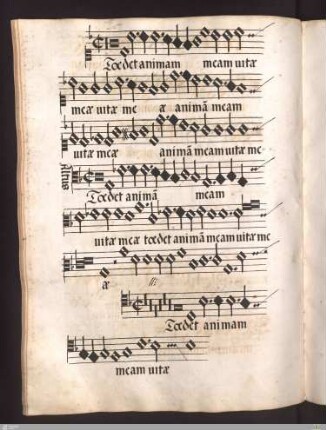 Tœdet animam meam uitæ
meæ uitæ me æ animā meam
uitæ meæ animā meam uitæ me
Altus
Tœdet animā meam
uitæ meæ tœdet animā meam uitæ me
æ
Tœdet animam
meam uitæ